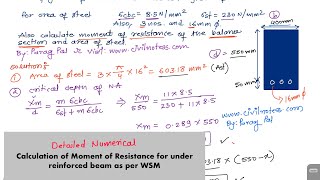 For area of steel 6cbc = 8.5N/mm² 6st = 230 N/mm²
Also 3 nos. and 16mm ø.
Also calculate moment of resistance of the balance
section and area of steel
By Parag Pal & visit: www.civilnotess.com
Solution:
1) Area of steel = 3 × π/4 × 16² = 603.18 mm² (Ast)
2) critical depth of N.A
xm/d = m 6cbc / 6st + m 6cbc ⇒ xm/550 = 11 × 8.5 / 230 + 11 × 8.5
xm = 0.289 × 550
d = 550mm
50 mm
16mm ø
www.civilnotess.com
By: Parag Pal
603.18 × (550-x)
Detailed Numerical
Calculation of Moment of Resistance for under
reinforced beam as per WSM